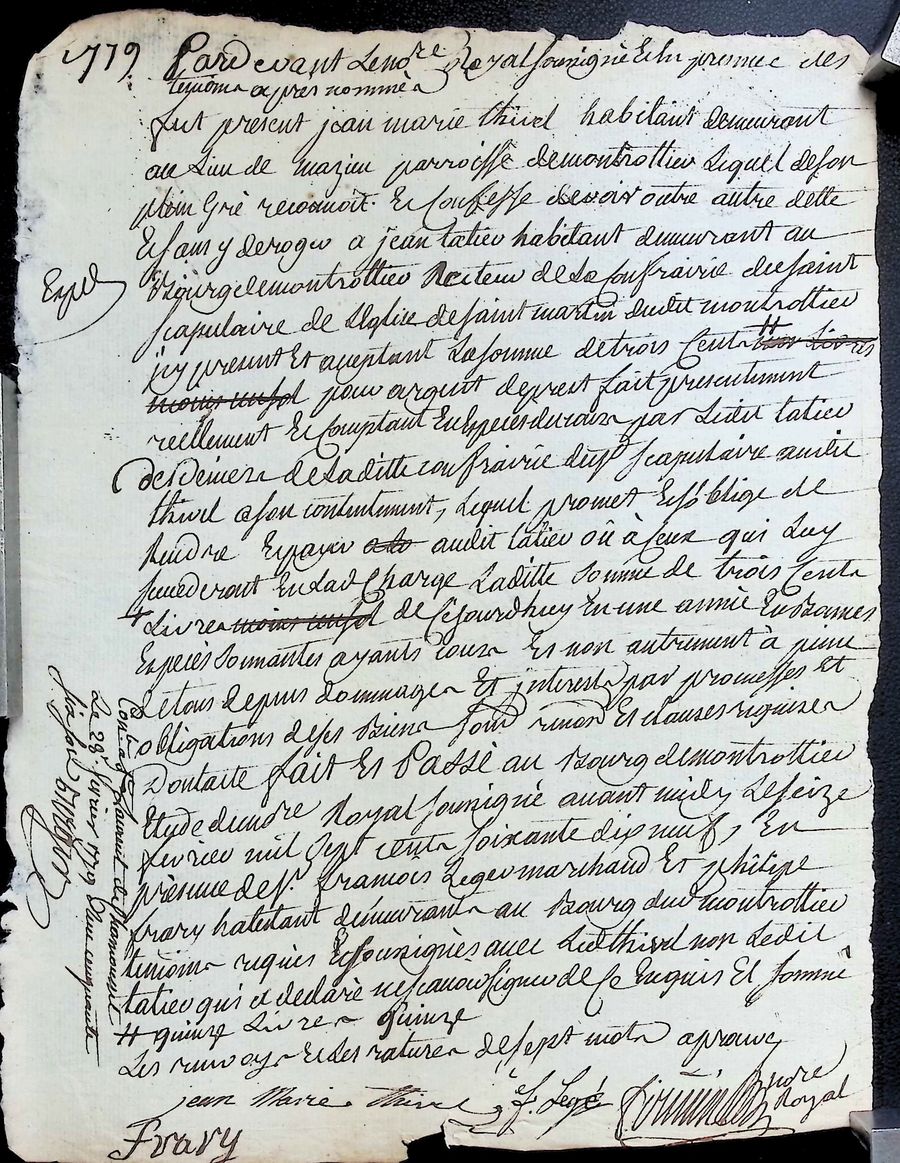 1779
Pardevant Le nore Royal soussigné Et En presence des
temoins apres nommés
fut present jean marie thivel habitant demeurant
au Lieu de mazieu parroisse de montrottier Lequel de son
plein Gré reconnoit Et Confesse devoir outre autre dette
Et sans y deroger a jean tatieu habitant demeurant au
Bourg de montrottier Recteur de La Confrairie du saint
scapulaire de L'Eglise de saint martin dudit montrottier
icy present Et aceptant La somme de trois Cents # trois Livres
moins un sol pour argent de prest fait presentement
reellement Et Comptant En Especes de cours par Ledit tatieu
des deniers de Laditte confrairie du st scapulaire audit
thivel a son contentement, Lequel promet Et s'oblige de
Rendre Et payer a lo audit tatieu où à Ceux qui Luy
succederont En Lad Charge Laditte Somme de trois Cents
# Livres moins un sol de Cejourdhuy En une année En Bonnes
Especes Sonnantes ayants cours Et non autrement à peine
de tous depens dommages Et interests par promesses Et
obligations de ses Biens Soum renon Et clauses requises
Dont acte fait Et Passé au Bourg de montrottier
Etude du nore Royal soussigné avant midy Le seize
fevrier mil Sept cents soixante dix neuf, En
presence de sr. francois Leger marchand Et philipe
frary habitant demeurants au Bourg dud montrottier
temoins requis Et soussignés avec Led thivel non Ledit
tatieu qui a declaré ne scavoir signer de Ce Enquis Et sommé
# quinze Livres quinze
Les renvoys Et Les ratures de sept mots aprouvé
jean Marie thivel
f. Legé
nore Royal
Frary
Exped
Con.lé à St Laurent de Chamousset
Le 28 fevrier 1779 Reçu cinquante